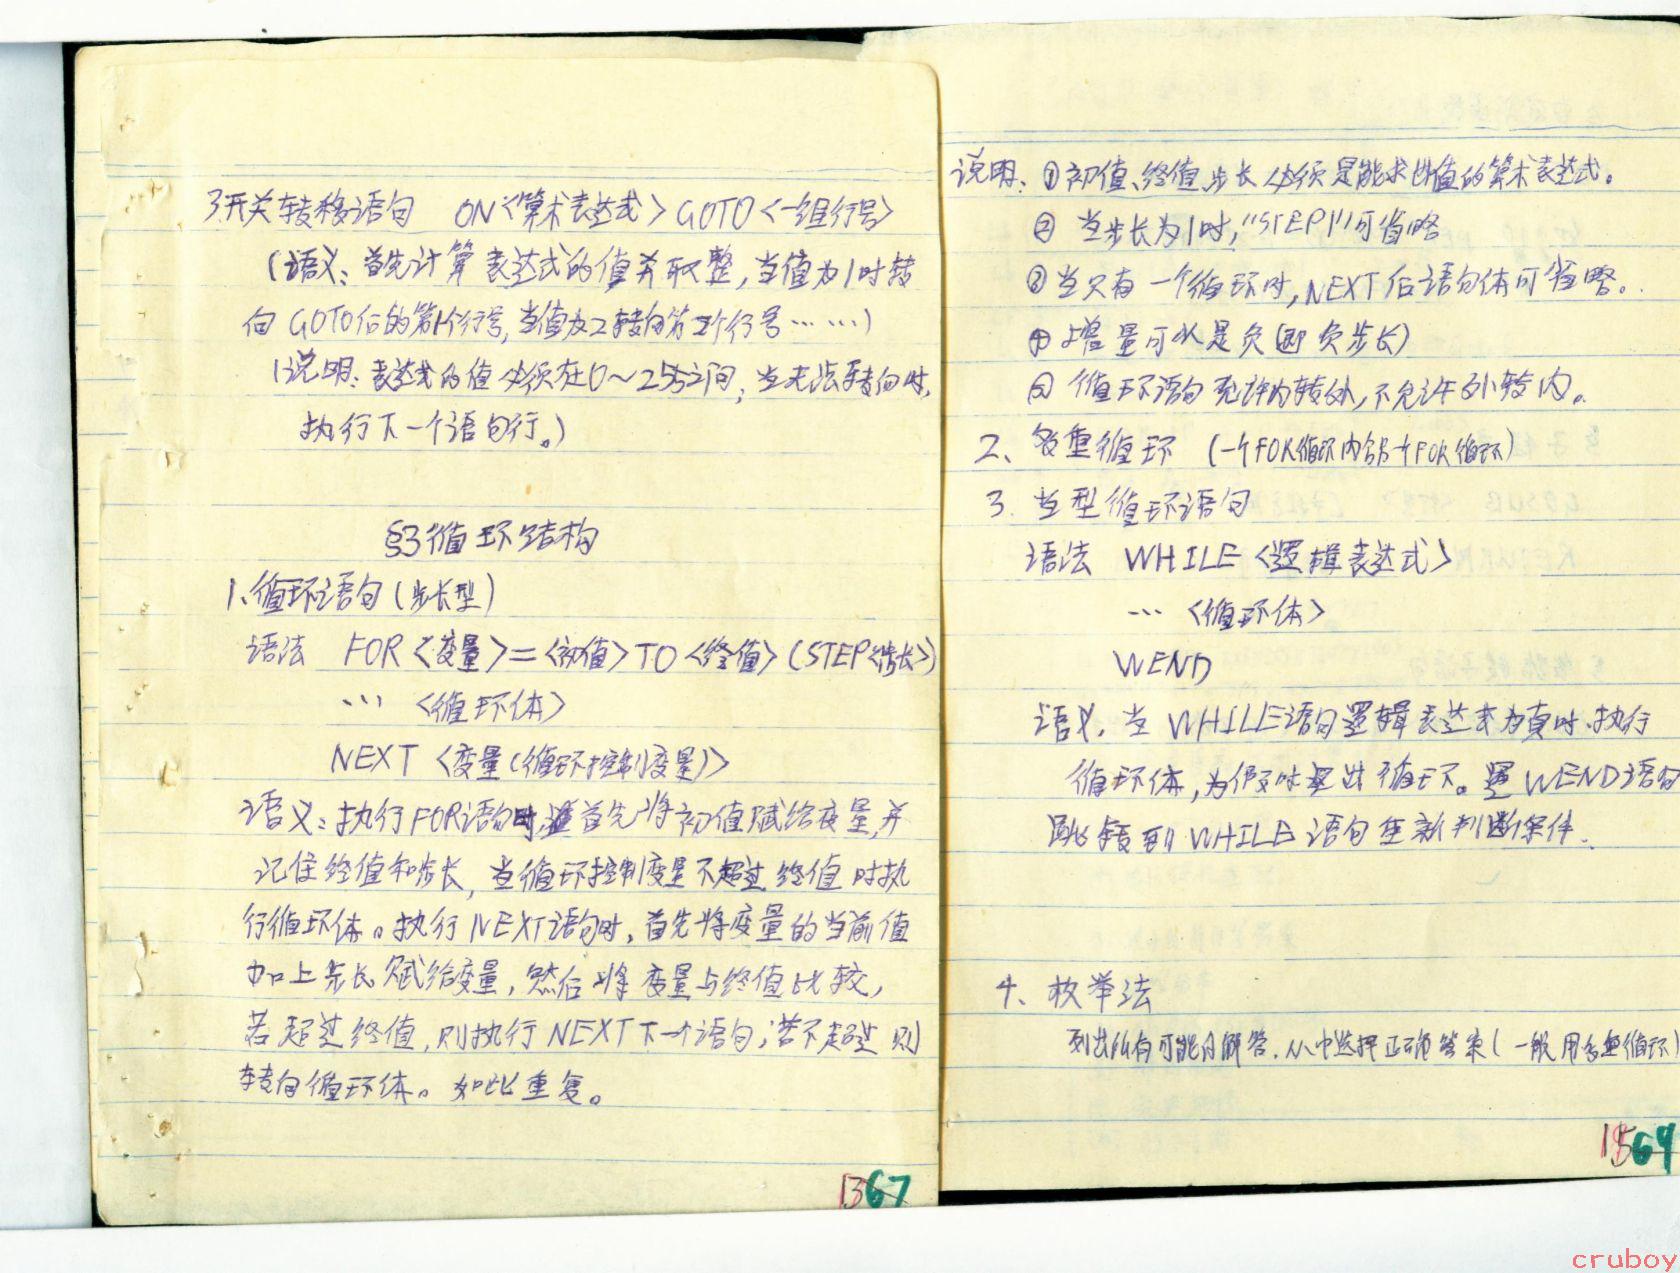 3.开关转移语句 ON<算术表达式>GOTO<一组行号>
(语义:首先计算表达式的值并取整,当值为1时转
向GOTO后的第1个行号,当值为2转向第2个行号……)
(说明:表达式的值必须在0~255之间,当无法转向时,
执行下一个语句行。)
§3循环结构
1.循环语句(步长型)
语法 FOR<变量>=<初值>TO<终值>(STEP<步长>)
… <循环体>
NEXT <变量(循环控制变量)>
语义:执行FOR语句时,首先将初值赋给变量,并
记住终值和步长,当循环控制变量不超过终值时执
行循环体。执行NEXT语句时,首先将变量的当前值
加上步长赋给变量,然后将变量与终值比较,
若超过终值,则执行NEXT下一个语句;若不超过则
转向循环体。如此重复。
1367
说明:①初值、终值、步长必须是能求出值的算术表达式。
②当步长为1时,"STEP1"可省略
③当只有一个循环时,NEXT后语句体可省略。
④增量可以是负(即负步长)
⑤循环语句允许内转外,不允许外转内。
2、多重循环 (一个FOR循环内含另一个FOR循环)
3.当型循环语句
语法 WHILE<逻辑表达式>
… <循环体>
WEND
语义.当WHILE语句逻辑表达式为真时.执行
循环体,为假时退出循环。遇WEND语句
跳转到WHILE语句重新判断条件.
4、枚举法
列出所有可能的解答.从中选择正确答案(一般用多重循环)
1569
cruboy